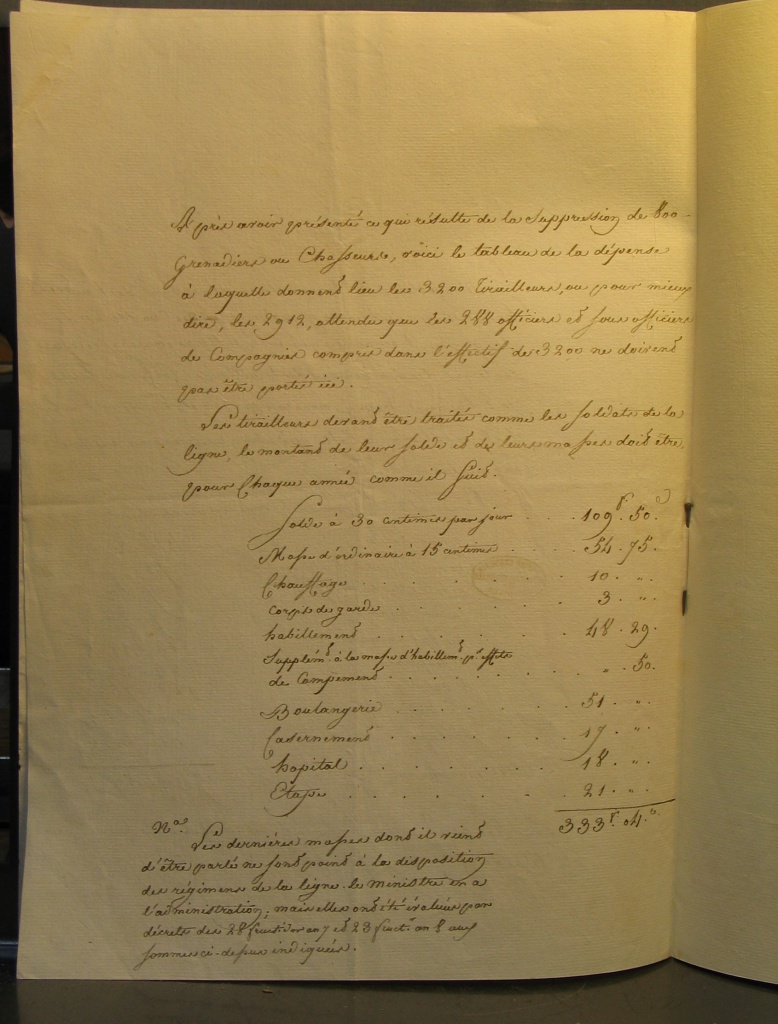 Après avoir présenté ce qui résulte de la Suppression de 800
Grenadiers ou Chasseurs, voici le tableau de la dépense
à laquelle donnent lieu les 3200 Tirailleurs, ou pour mieux
dire, les 2912, attendu que les 288 officiers et sous officiers
de Compagnies compris dans l'effectif de 3200 ne doivent
pas être portés ici.
Les tirailleurs devant être traités comme les soldats de la
ligne, le montant de leur solde et de leurs masses doit être,
pour chaque année comme il suit.
Solde à 30 centimes par jour . . 109.f 50.c
Masse d'ordinaire à 15 centimes . . 54. 75.
Chauffage . . . . . 10. "
Corps de garde . . . . 3. "
habillement . . . . . 48. 29.
Supplém.t à la masse d'habillem.t p.r effets
de Campement . . . . . . " . 50.
Boulangerie . . . . . 51. "
Casernement . . . . . 17. "
hopital . . . . . . 18. "
Etape . . . . . . 21. "
333.f 04.c
N.a Les dernières masses dont il vient
d'être parlé ne sont point à la disposition
des régimens de la ligne. le ministre en a
l'administration; mais elles ont été évaluées par
décrets des 28 fructidor an 7 et 23 fruct.r an 8 aux
sommes ci-dessus indiquées.